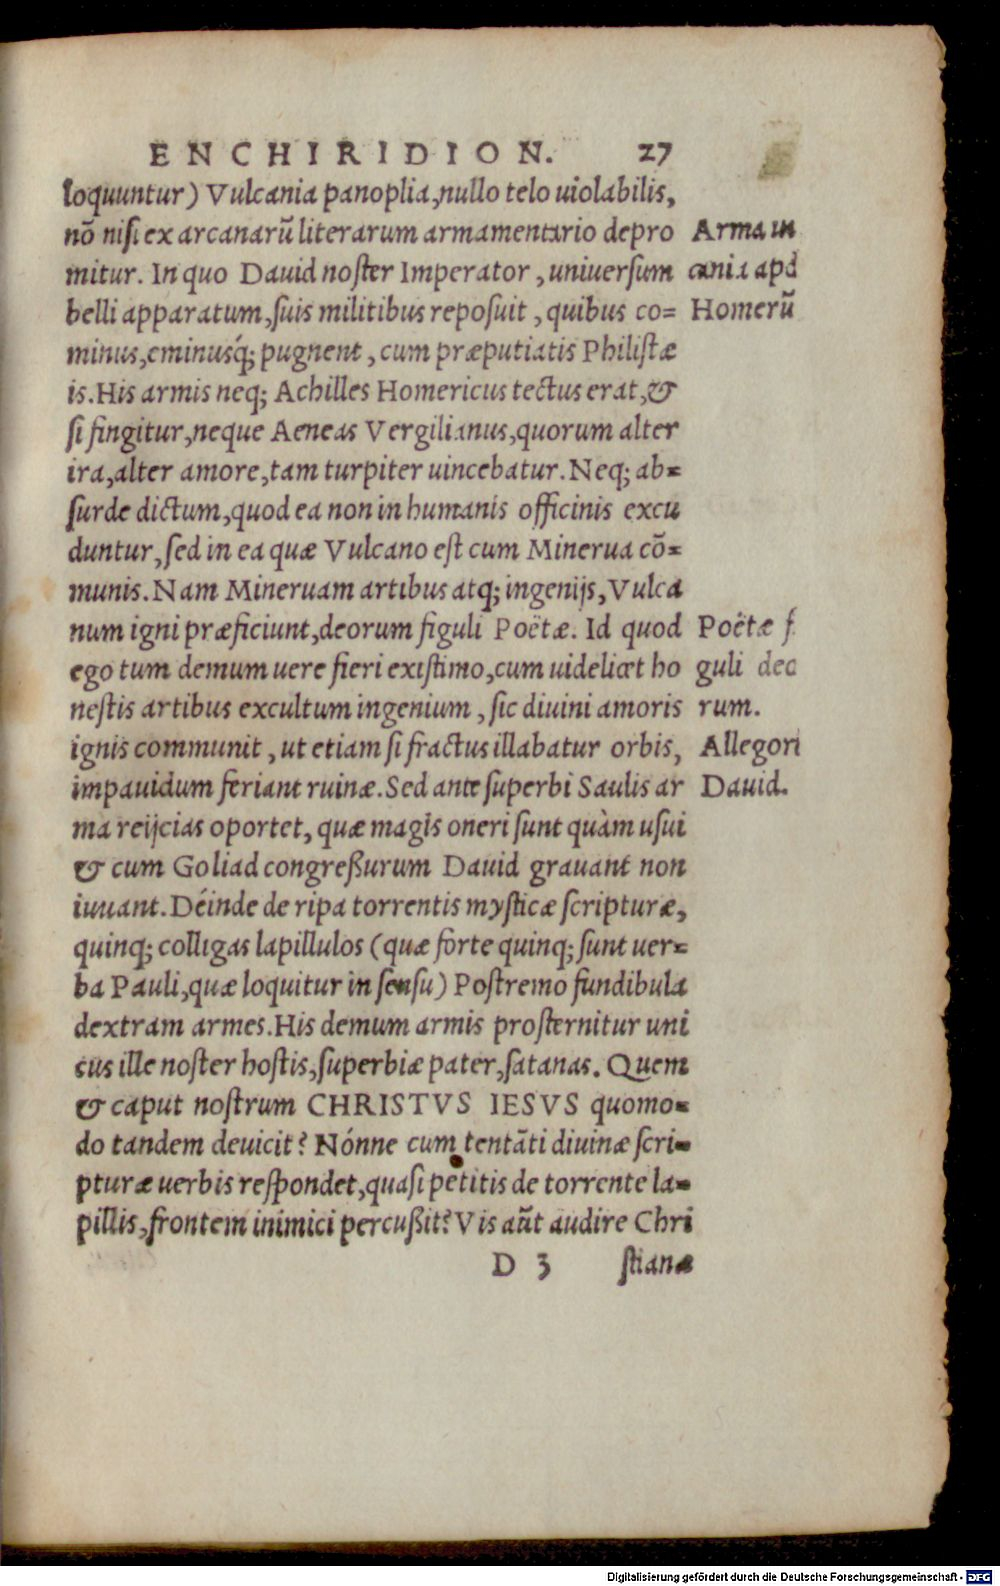 ENCHIRIDION. 27
loquuntur) Vulcania panoplia, nullo telo uiolabilis,
nõ nisi ex arcanarũ literarum armamentario depro
mitur. In quo Dauid noster Imperator, uniuersum
belli apparatum, suis militibus reposuit, quibus co=
minus, eminusq́; pugnent, cum præputiatis Philistæ
is. His armis neq; Achilles Homericus tectus erat, &
si fingitur, neque Aeneas Vergilianus, quorum alter
ira, alter amore, tam turpiter uincebatur. Neq; ab=
surde dictum, quod ea non in humanis officinis excu
duntur, sed in ea quæ Vulcano est cum Minerua cõ=
munis. Nam Mineruam artibus atq; ingenijs, Vulca
num igni præficiunt, deorum figuli Poëtæ. Id quod
ego tum demum uere fieri existimo, cum uidelicet ho
nestis artibus excultum ingenium, sic diuini amoris
ignis communit, ut etiam si fractus illabatur orbis,
impauidum feriant ruinæ. Sed ante superbi Saulis ar
ma reijcias oportet, quæ magis oneri sunt quàm usui
& cum Goliad congreßurum Dauid grauant non
iuuant. Déinde de ripa torrentis mysticæ scripturæ,
quinq; colligas lapillulos (quæ forte quinq; sunt uer=
ba Pauli, quæ loquitur in sensu) Postremo fundibula
dextram armes. His demum armis prosternitur uni
cus ille noster hostis, superbiæ pater, satanas. Quem
& caput nostrum CHRISTVS IESVS quomo=
do tandem deuicit? Nónne cum tentãti diuinæ scri=
pturæ uerbis respondet, quasi petitis de torrente la=
pillis, frontem inimici percußit? Vis aũt audire Chri
D 3 stianæ
Arma
cania apd
Homerũ
Poëtæ f
guli deo
rum.
Allegori
Dauid.
Digitalisierung gefördert durch die Deutsche Forschungsgemeinschaft - DFG